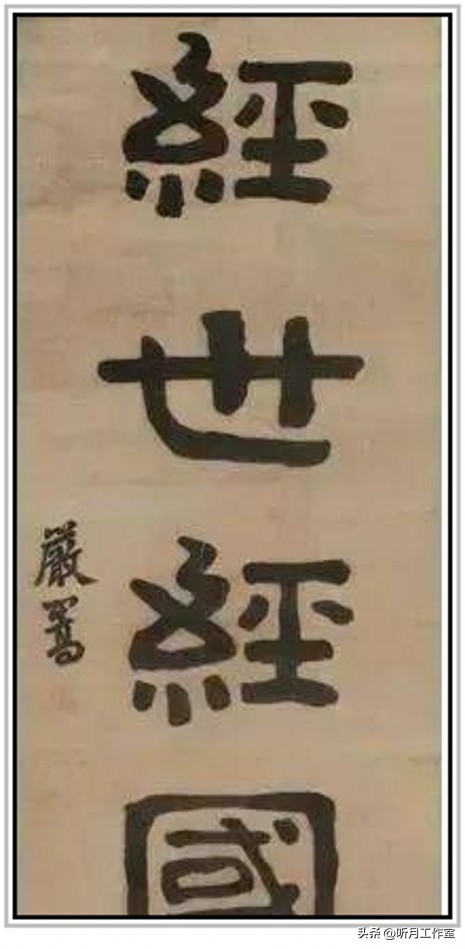 經世經國
嚴嵩
头条 @听月工作室